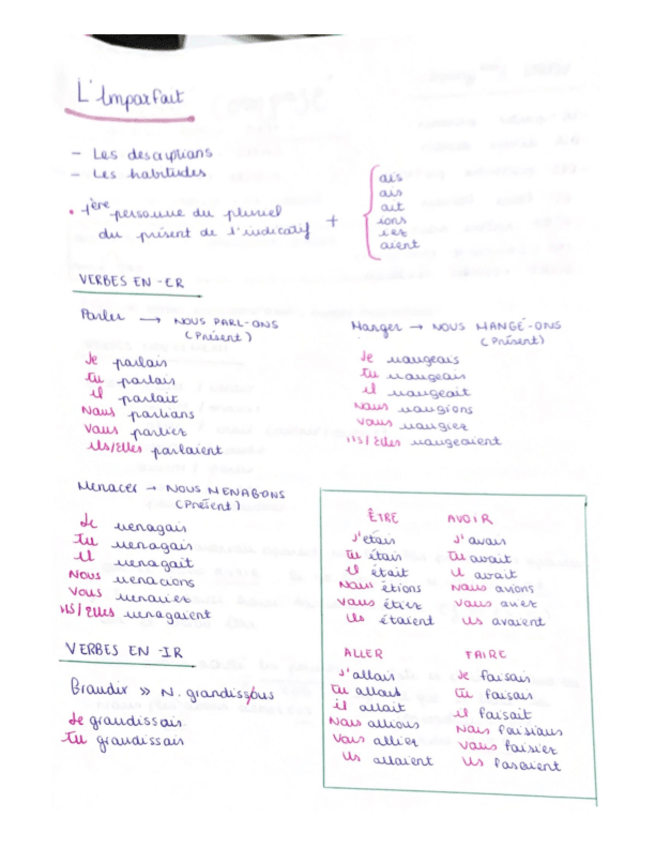 L'Imparfait
- Les descriptions
- Les habitudes
• 1ère personne du pluriel
du présent de l'indicatif +
ais
ais
ait
ions
iez
aient
VERBES EN -ER
Parler → NOUS PARL-ONS
(Présent)
Je parlais
Tu parlais
il parlait
Nous parlions
Vous parliez
ils/Elles parlaient
Manger → NOUS MANGE-ONS
(Présent)
Je mangeais
Tu mangeais
il mangeait
Nous mangions
Vous mangiez
ils/Elles mangeaient
Menacer → NOUS MENAÇONS
(Présent)
Je menaçais
Tu menaçais
il menaçait
Nous menacions
Vous menaciez
ils/Elles menaçaient
VERBES EN -IR
Grandir » N. grandissons
Je grandissais
Tu grandissais
ÊTRE
J'étais
Tu étais
il était
Nous étions
Vous étiez
ils étaient
AVOIR
J'avais
Tu avait
il avait
Nous avions
Vous aviez
ils avaient
ALLER
J'allais
Tu allais
il allait
Nous allions
Vous alliez
ils allaient
FAIRE
Je faisais
Tu faisais
il faisait
Nous faisions
Vous faisiez
ils fasaient